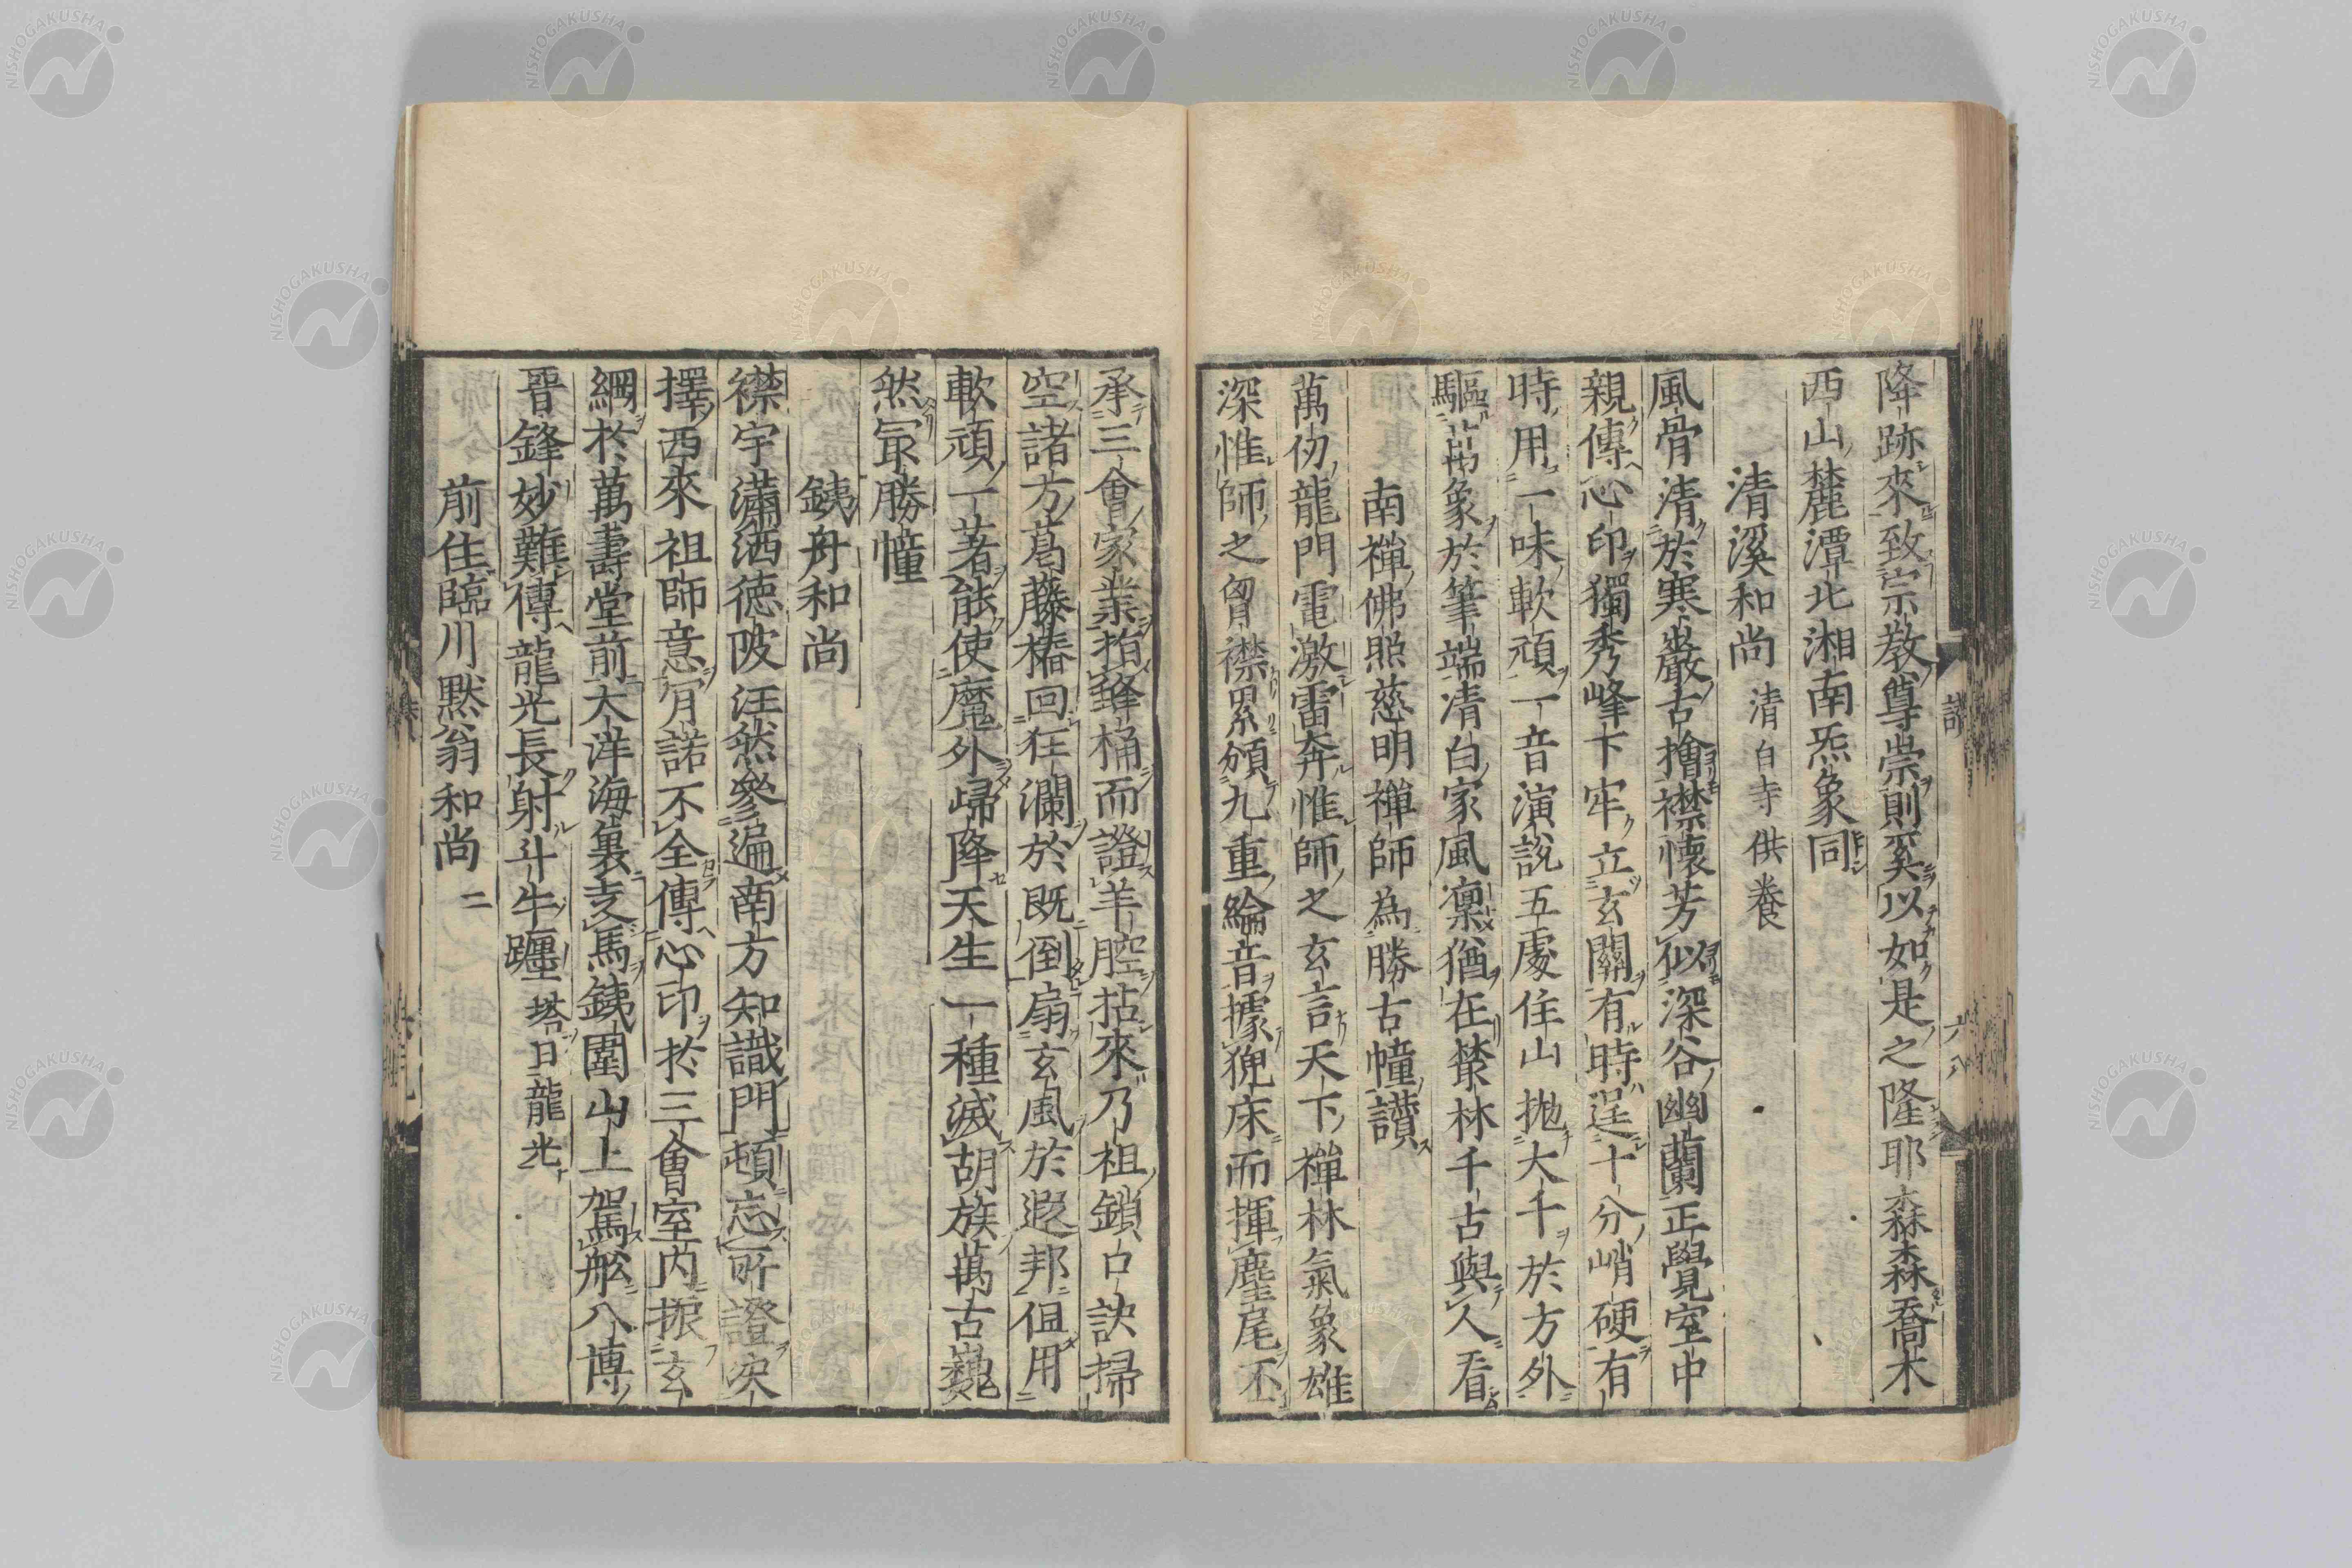 降跡來致宗教尊崇則奚以如是之隆耶森森喬木
西山麓潭北湘南炁象同
清溪和尚 清白寺供養
風骨清於寒巖古檜襟懷芳似深谷幽蘭正覺室中
親傳心印獨秀峰下牢立玄關有時逞十分峭硬有
時用一味軟頑一音演說五處住山拋大千於方外
驅萬象於筆端清白家風凜猶在叢林千古與人看
南禪佛照慈明禪師為勝古幢讚
萬仞龍門電激雷奔惟師之玄言天下禪林氣象雄
深惟師之胷襟累頒九重綸音據猊床而揮麈尾丕
承三會家業拍鋒桶而證羊腔拈來乃祖鎖口訣掃
空諸方葛藤樁回狂瀾於既倒扇玄風於遐邦但用
軟頑一著能使魔外歸降天生一種滅胡族萬古巍
然冣勝幢
銕舟和尚
襟宇瀟洒德陂汪然參遍南方知識門頓忘所證突
擇西來祖師意肎諾不全傳心印於三會室内振玄
綱於萬壽堂前大洋海裏走馬銕圍山上駕舩八博
晋鋒妙難傳龍光長射斗牛躔 塔曰龍光
前住臨川黙翁和尚 二
六八
NISHOGAKUSHA